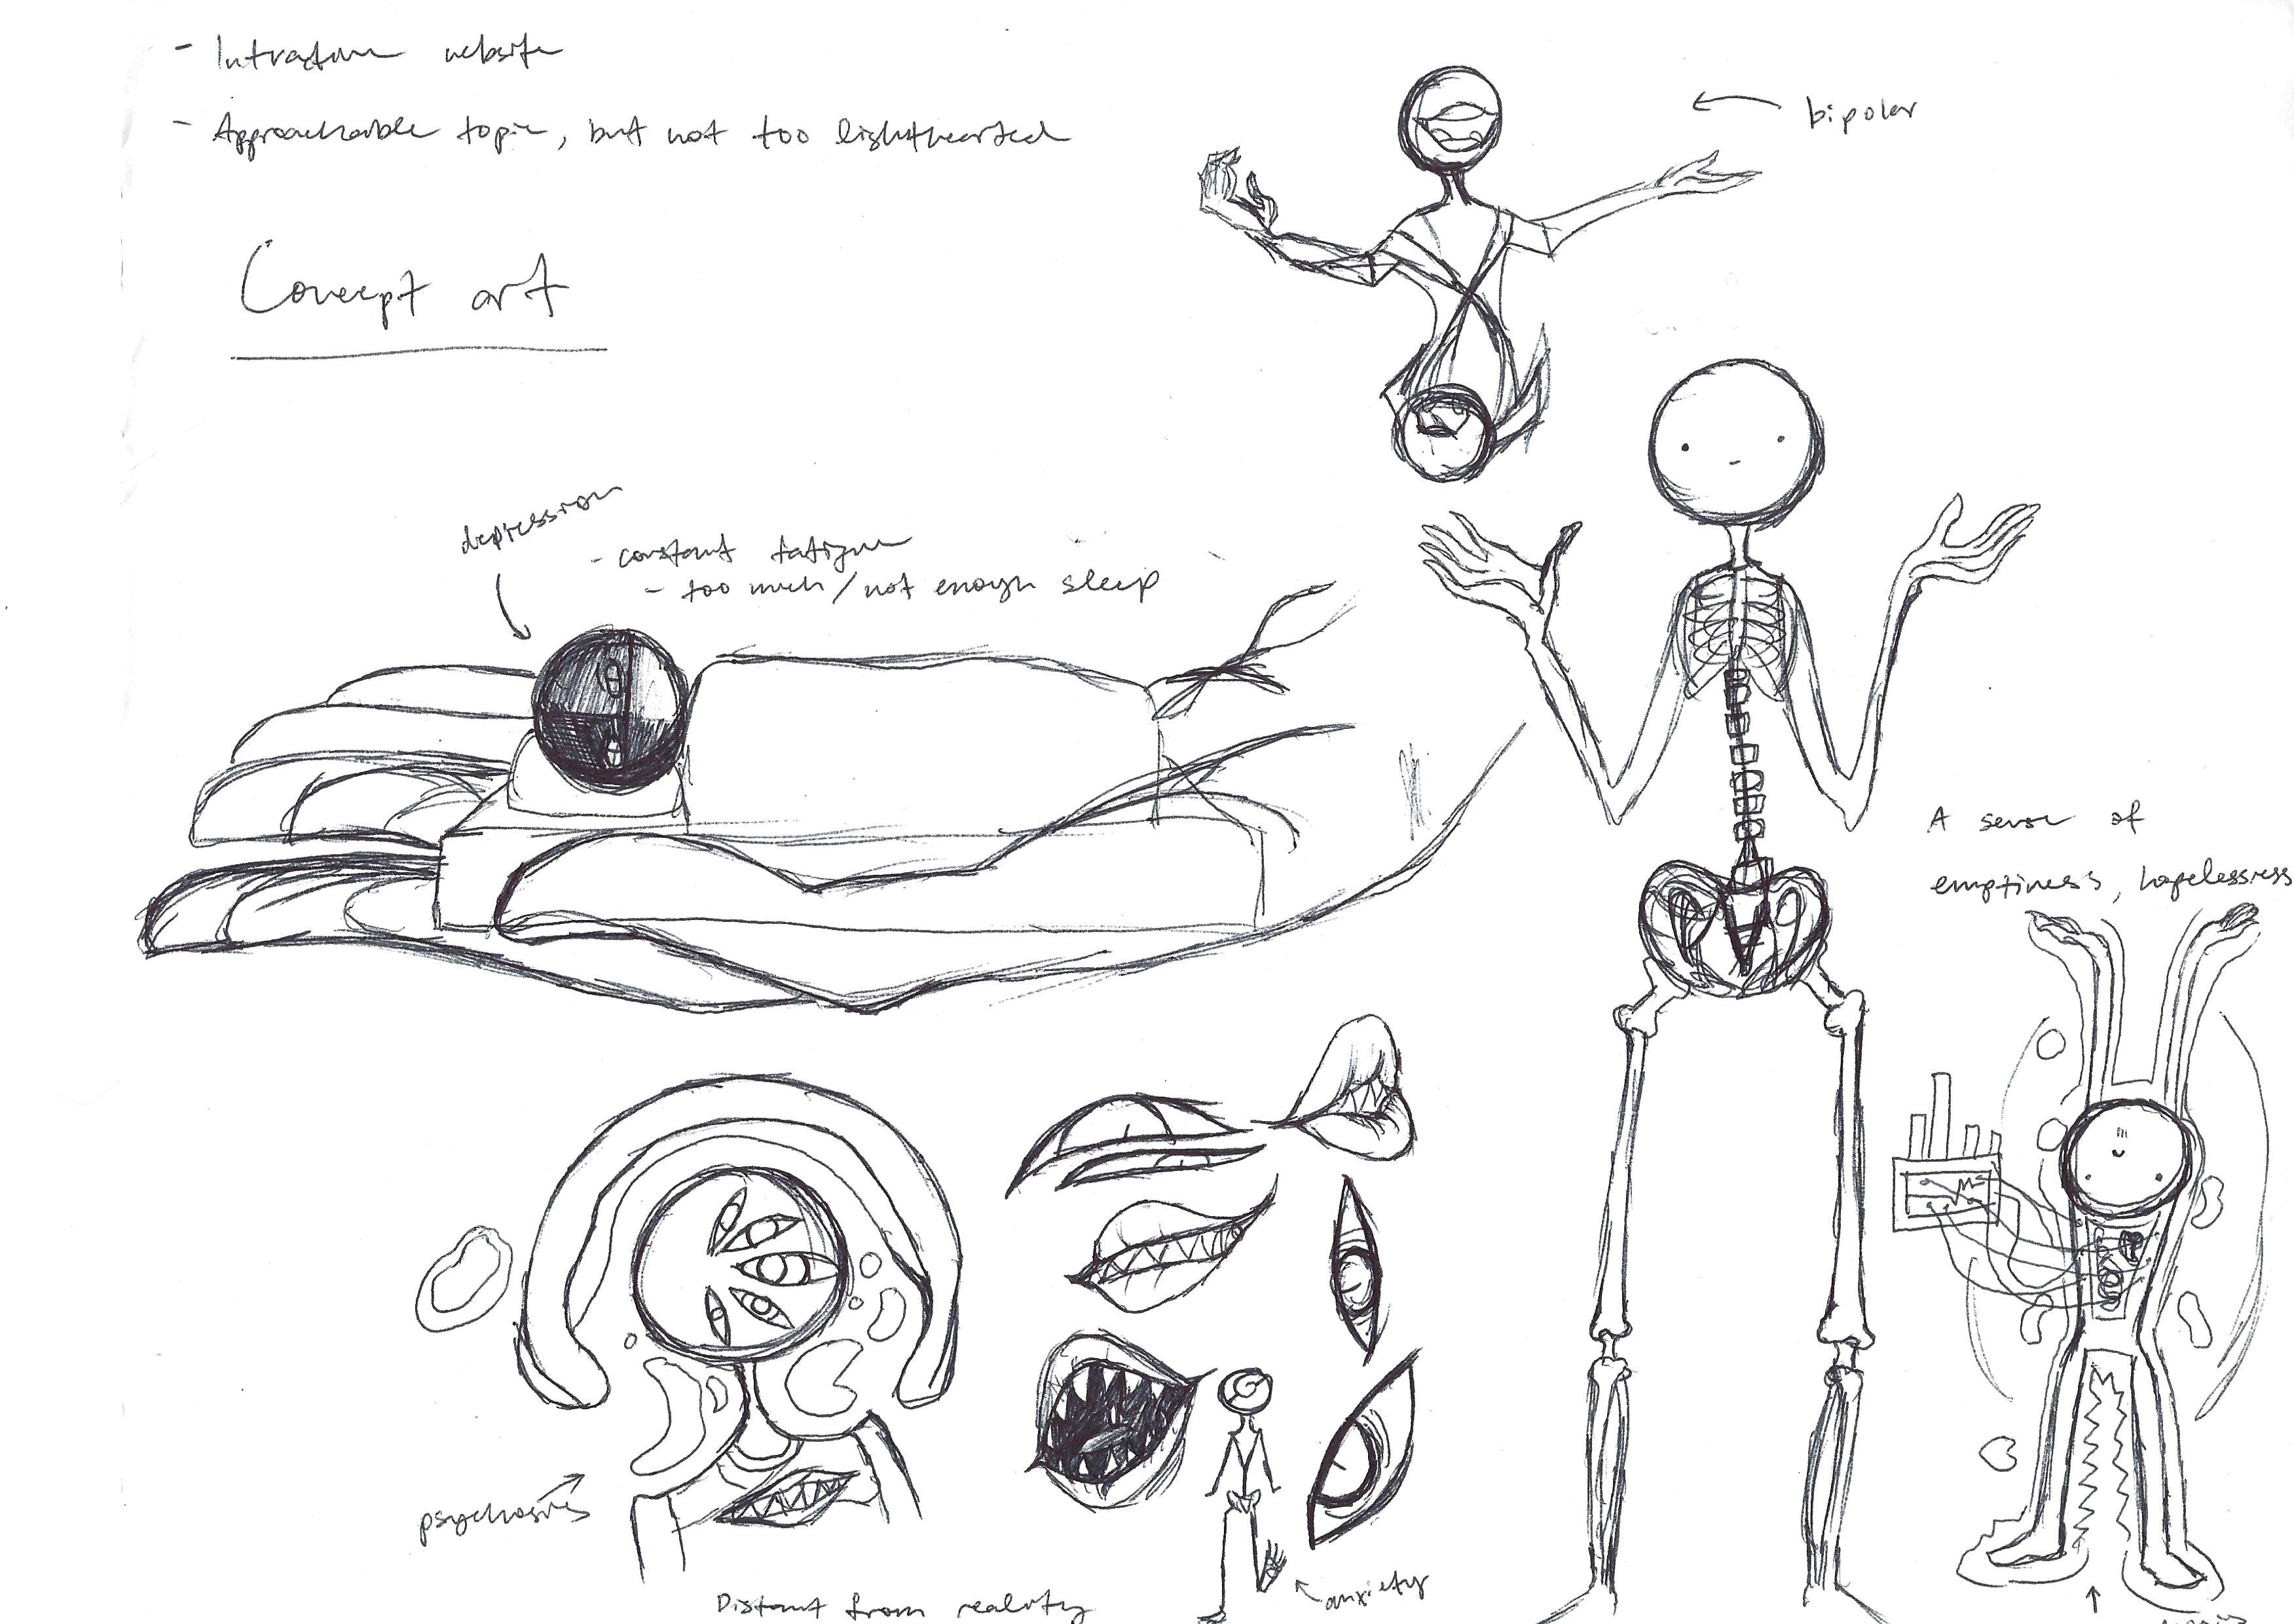 - Interactive website
- Approachable topic, but not too lighthearted
Concept art
bipolar
depression
- constant fatigue
- too much/not enough sleep
A sense of
emptiness, hopelessness
psychosis
Distant from reality
anxiety